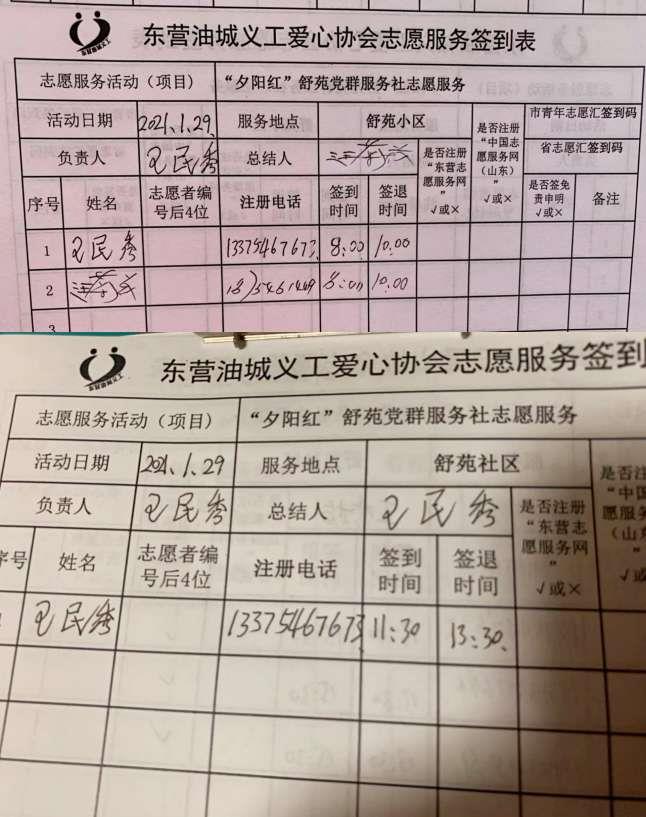 东营油城义工
东营油城义工爱心协会志愿服务签到表
志愿服务活动（项目） “夕阳红”舒苑党群服务社志愿服务
活动日期 2021.1.29. 服务地点 舒苑小区 是否注册“东营志愿服务网” √或× 是否注册“中国志愿服务网（山东）” √或× 市青年志愿汇签到码
负责人 王民秀 总结人 省志愿汇签到码
序号 姓名 志愿者编号后4位 注册电话 签到时间 签退时间 是否签免责申明 √或× 备注
1 王民秀 13375467673 8:00 10.00
2 8:00 10.00
3
东营油城义工
东营油城义工爱心协会志愿服务签到
志愿服务活动（项目） “夕阳红”舒苑党群服务社志愿服务
活动日期 2021.1.29 服务地点 舒苑社区
负责人 王民秀 总结人 王民秀 是否注册“东营志愿服务网” √或×
序号 姓名 志愿者编号后4位 注册电话 签到时间 签退时间
王民秀 13375467673 11:30 13:30.